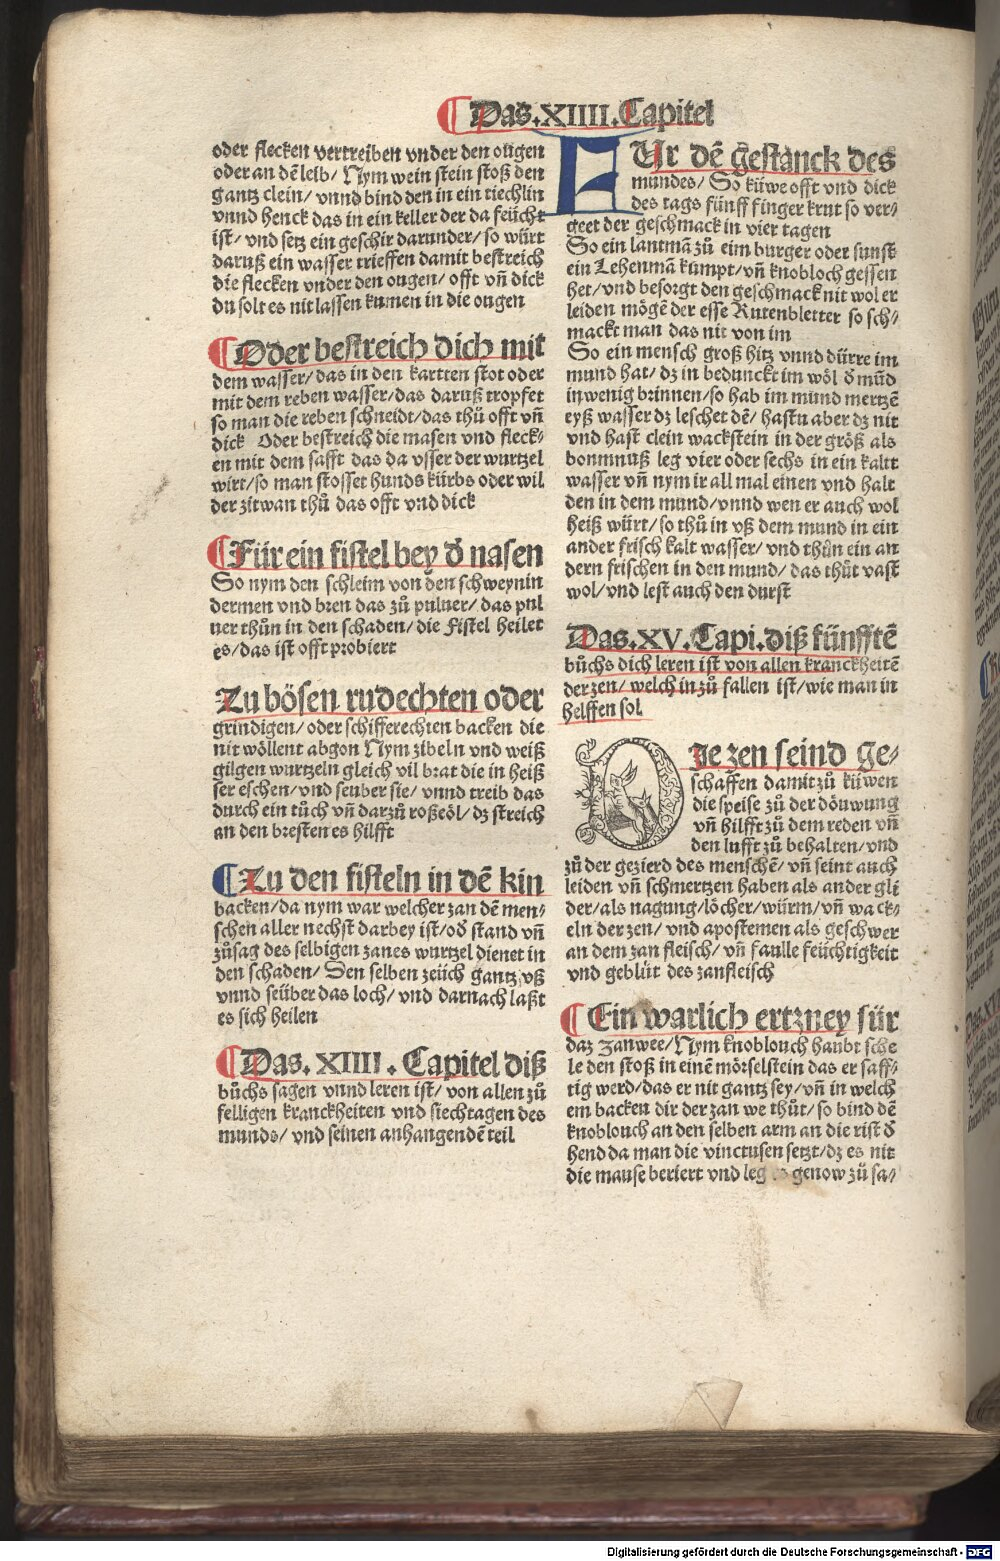 Das.XIIII.Capitel
oder flecken vertreiben vnder den ougen
oder an dē leib/ Nym wein stein stoß den
gantz clein/ vnnd bind den in ein tiechlin
vnnd henck das in ein keller der da feücht
ist/ vnd setz ein geschir darunder/ so würt
daruß ein wasser trieffen damit bestreich
die flecken vnder den ougen/ offt vñ dick
du solt es nit lassen kumen in die ougen
Oder bestreich dich mit
dem wasser/ das in den kartten stot oder
mit dem reben wasser/ das daruß tropfet
so man die reben schneidt/ das thů offt vñ
dick Oder bestreich die masen vnd fleck-
en mit dem safft das da vsser der wurtzel
wirt/ so man stosset hunds kürbs oder wil
der zitwan thů das offt vnd dick
Für ein fistel bey d̄ nasen
So nym den schleim von den schweynin
dermen vnd bren das zů puluer/ das pul
uer thůn in den schaden/ die Fistel heilet
es/ das ist offt probiert
Zu bösen rudechten oder
grindigen/ oder schifferechten backen die
nit wöllent abgon Nym zibeln vnd weiß
gilgen wurtzeln gleich vil brat die in heiß
ser eschen/ vnd seuber sie/ vnnd treib das
durch ein tůch vñ darzů roßeöl/ dz streich
an den bresten es hilfft
Zu den fisteln in dē kin
backen/ da nym war welcher zan dē men-
schen aller nechst darbey ist/ od̄ stand vñ
zůsag des selbigen zanes wurtzel dienet in
den schaden/ Den selben zeüch gantz vß
vnnd seüber das loch/ vnd darnach laßt
es sich heilen
Das. XIIII. Capitel diß
bůchs sagen vnnd leren ist/ von allen zů
felligen kranckheiten vnd siechtagen des
munds/ vnd seinen anhangendē teil
FUr dē gestanck des
mundes/ So küwe offt vnd dick
des tags fünff finger krut so ver-
geet der geschmack in vier tagen
So ein lantmā zů eim burger oder sunst
ein Lehenmā kumpt/ vñ knobloch gessen
het/ vnd besorgt den geschmack nit wol er
leiden mögē der esse Rutenbletter so sch-
mackt man das nit von im
So ein mensch groß hitz vnnd dürre im
mund hat/ dz in bedunckt im wöl d̄ mūd
inwenig brinnen/ so hab im mund mertzē
eyß wasser dz leschet dē/ hastu aber dz nit
vnd hast clein wackstein in der größ als
bonmnuß leg vier oder sechs in ein kaltt
wasser vñ nym ir all mal einen vnd halt
den in dem mund/ vnnd wen er auch wol
heiß würt/ so thů in vß dem mund in ein
ander frisch kalt wasser/ vnd thůn ein an
dern frischen in den mund/ das thůt vast
wol/ vnd lest auch den durst
Das.XV.Capi.diß fünfftē
bůchs dich leren ist von allen kranckheitē
der zen/ welch in zů fallen ist/ wie man in
helffen sol
DJe zen seind ge-
schaffen damit zů küwen
die speise zů der döuwung
vñ hilfft zů dem reden vñ
den lufft zů behalten/ vnd
zů der gezierd des menschē/ vñ seint auch
leiden vñ schmertzen haben als ander gli
der/ als nagung/ löcher/ würm/ vñ wack-
eln der zen/ vnd apostemen als geschwer
an dem zan fleisch/ vñ faulle feüchtigkeit
vnd geblüt des zanfleisch
Ein warlich ertzney für
daz Zanwee/ Nym knoblouch haubt sche
le den stoß in einē mörselstein das er saff-
tig werd/ das er nit gantz sey/ vñ in welch
em backen dir der zan we thůt/ so bind dē
knoblouch an den selben arm an die rist d̄
hend da man die vinctusen setzt/ dz es nit
die mause beriert vnd leg genow zů sa-
Digitalisierung gefördert durch die Deutsche Forschungsgemeinschaft - DFG